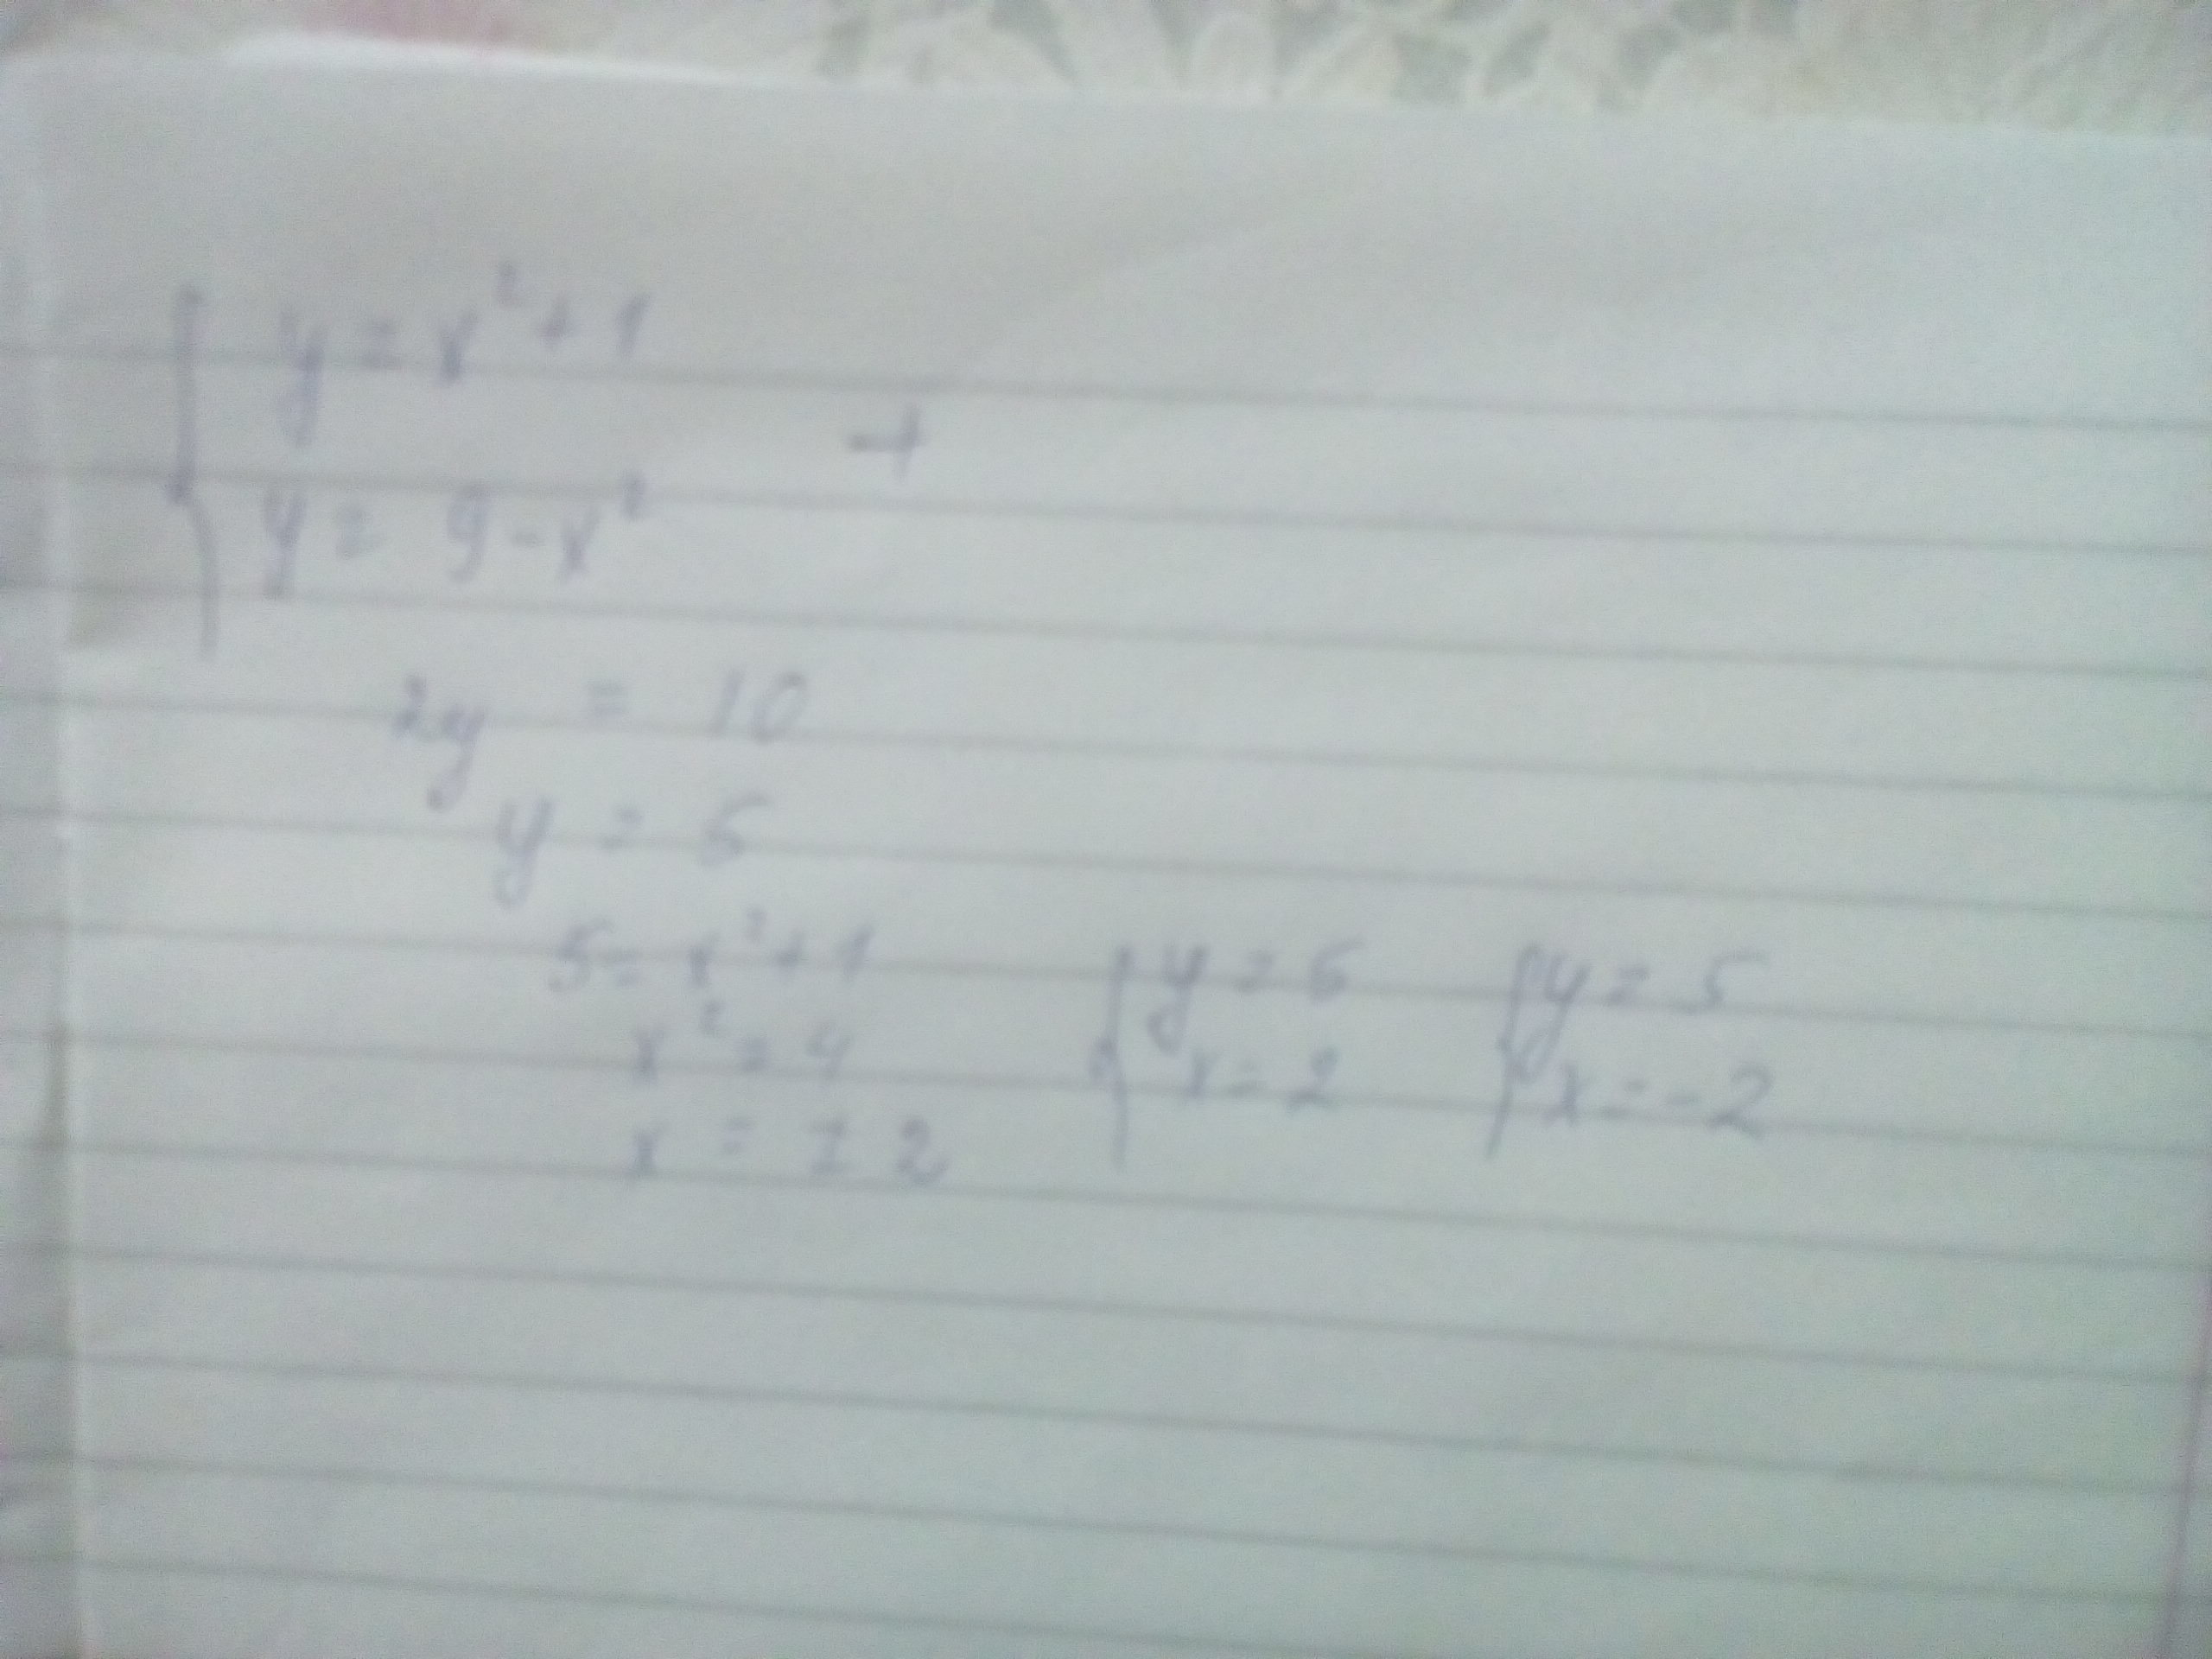 y = x² + 1
+
y = 9 - x²
2y = 10
y = 5
5 = x² + 1
x² = 4
x = ± 2
{ y = 5
x = 2
{ y = 5
x = -2